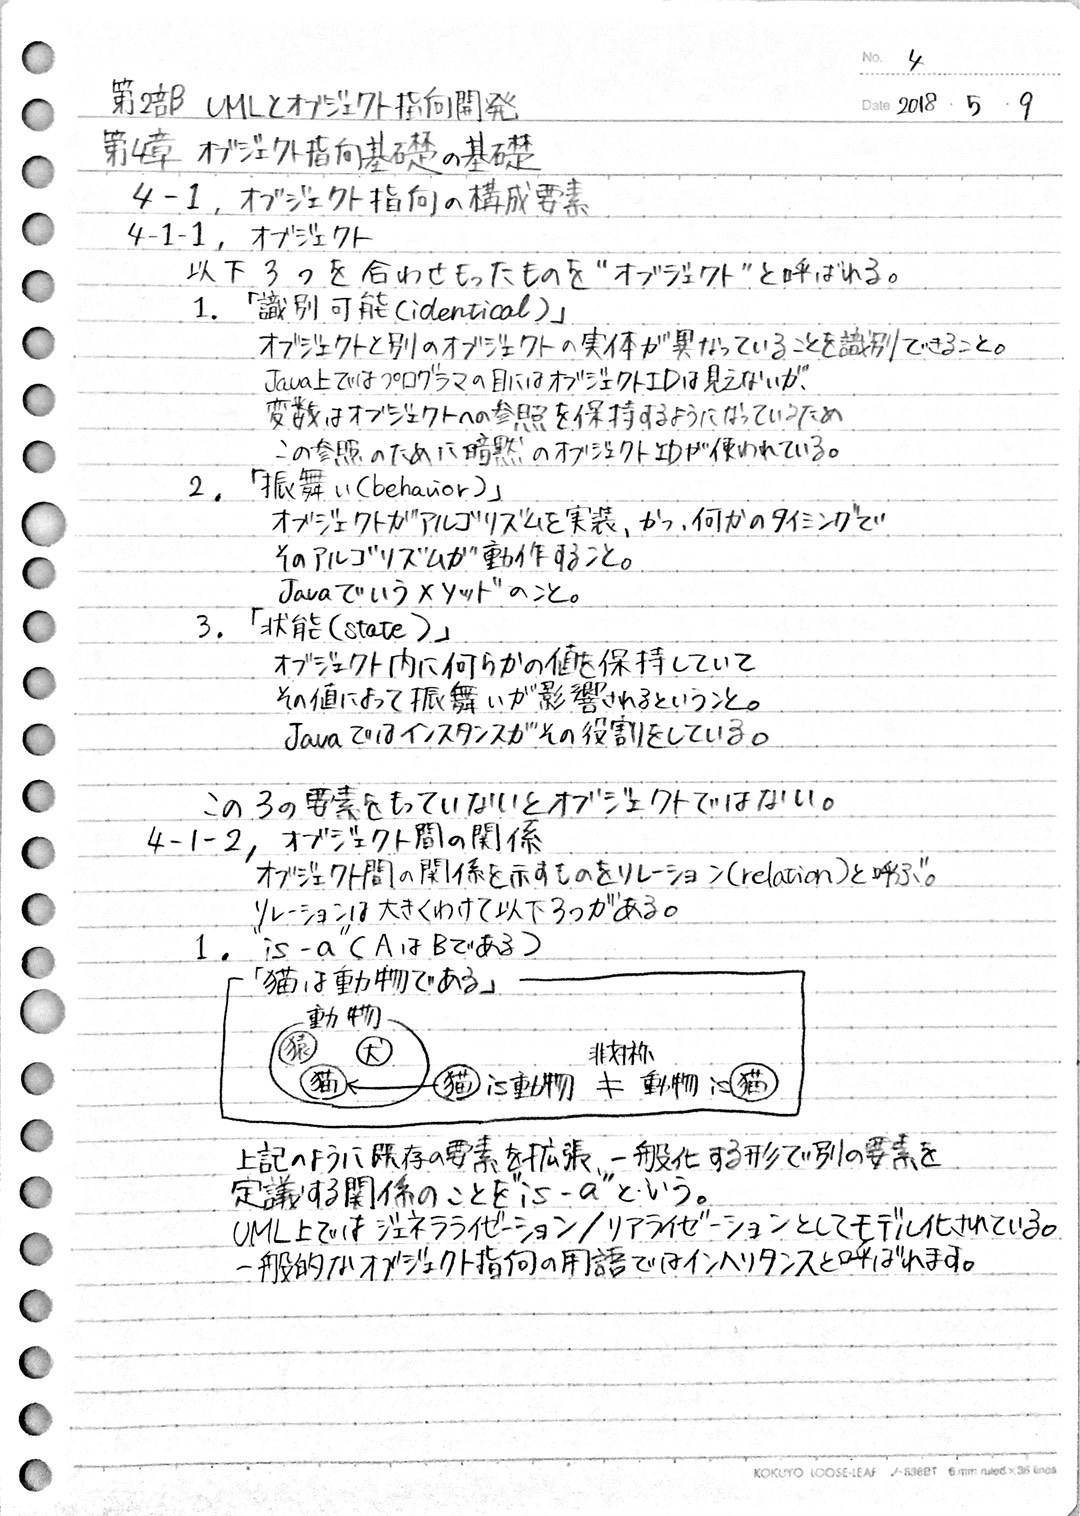 No. 4
Date 2018・5・9
第2部 UMLとオブジェクト指向開発
第4章 オブジェクト指向基礎の基礎
4-1, オブジェクト指向の構成要素
4-1-1, オブジェクト
以下3つを合わせもったものを"オブジェクト"と呼ばれる。
1. 「識別可能(identical)」
オブジェクトと別のオブジェクトの実体が異なっていることを識別できること。
Java上ではプログラマの目にはオブジェクトIDは見えないが、
変数はオブジェクトへの参照を保持するようになっているため
この参照のために暗黙のオブジェクトIDが使われている。
2. 「振舞い(behavior)」
オブジェクトがアルゴリズムを実装、かつ、何かのタイミングで
そのアルゴリズムが動作すること。
Javaでいうメソッドのこと。
3. 「状能(state)」
オブジェクト内に何らかの値を保持していて
その値によって振舞いが影響されるということ。
Javaではインスタンスがその役割をしている。
この3の要素をもっていないとオブジェクトではない。
4-1-2, オブジェクト間の関係
オブジェクト間の関係を示すものをリレーション(relation)と呼ぶ。
リレーションは大きくわけて以下3つがある。
1. "is-a"(AはBである)
「猫は動物である」
動物
猿 犬
非対称
猫 猫 is 動物 ≠ 動物 is 猫
上記のように既存の要素を拡張、一般化する形で別の要素を
定議する関係のことを"is-a"という。
UML上ではジェネラライゼーション/リアライゼーションとしてモデル化されている。
一般的なオブジェクト指向の用語ではインヘリタンスと呼ばれます。
KOKUYO LOOSE-LEAF ノ-836BT 6 mm ruled×36 lines